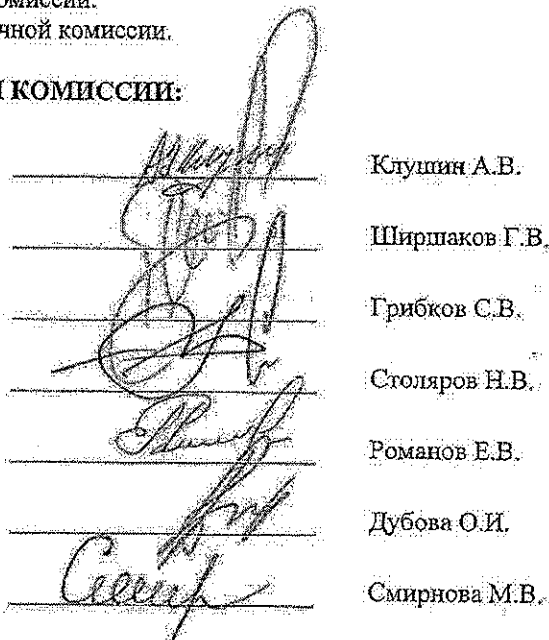 омиссии.
чной комиссии.
КОМИССИИ:
Клушин А.В.
Ширшаков Г.В.
Грибков С.В.
Столяров Н.В.
Романов Е.В.
Дубова О.И.
Смирнова М.В.